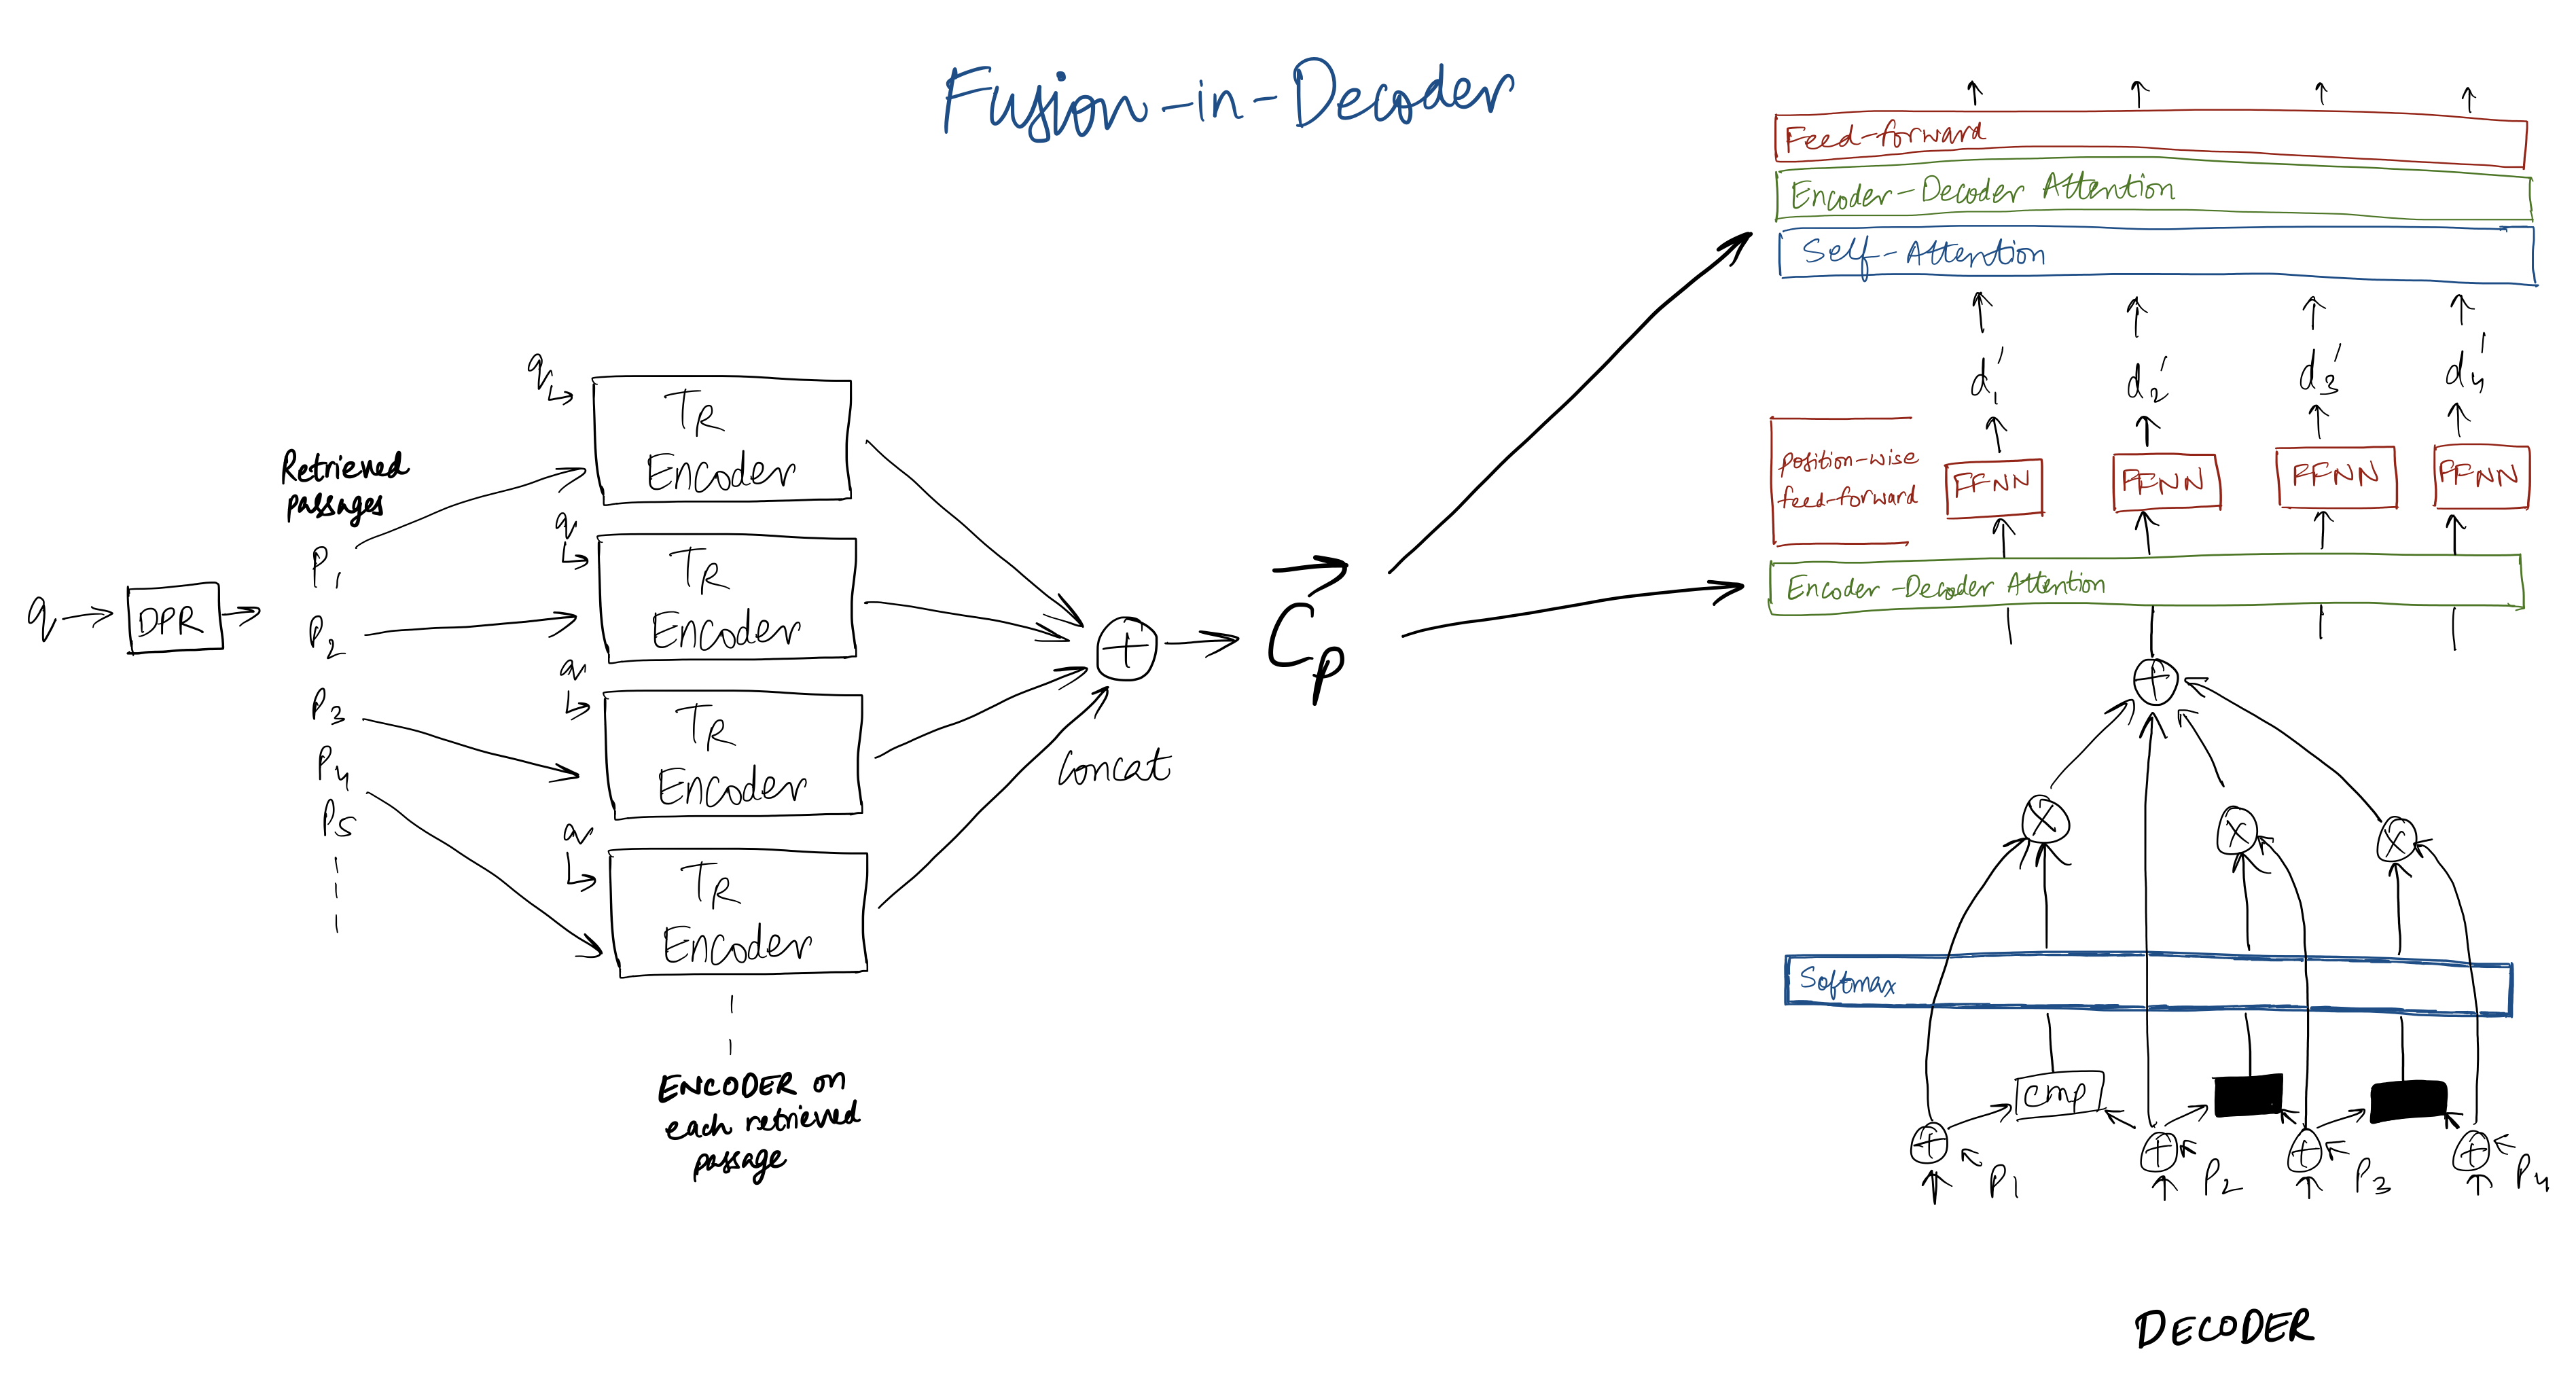 Fusion-in-Decoder
q
DPR
Retrieved
passages
P1
P2
P3
P4
P5
q
TR
Encoder
q
TR
Encoder
q
TR
Encoder
q
TR
Encoder
ENCODER on
each retrieved
passage
Concat
Cp
Feed-forward
Encoder-Decoder Attention
Self-Attention
d1' d2' d3' d4'
position-wise
feed-forward
FFNN FFNN FFNN FFNN
Encoder-Decoder Attention
Softmax
cmp
P1 P2 P3 P4
DECODER